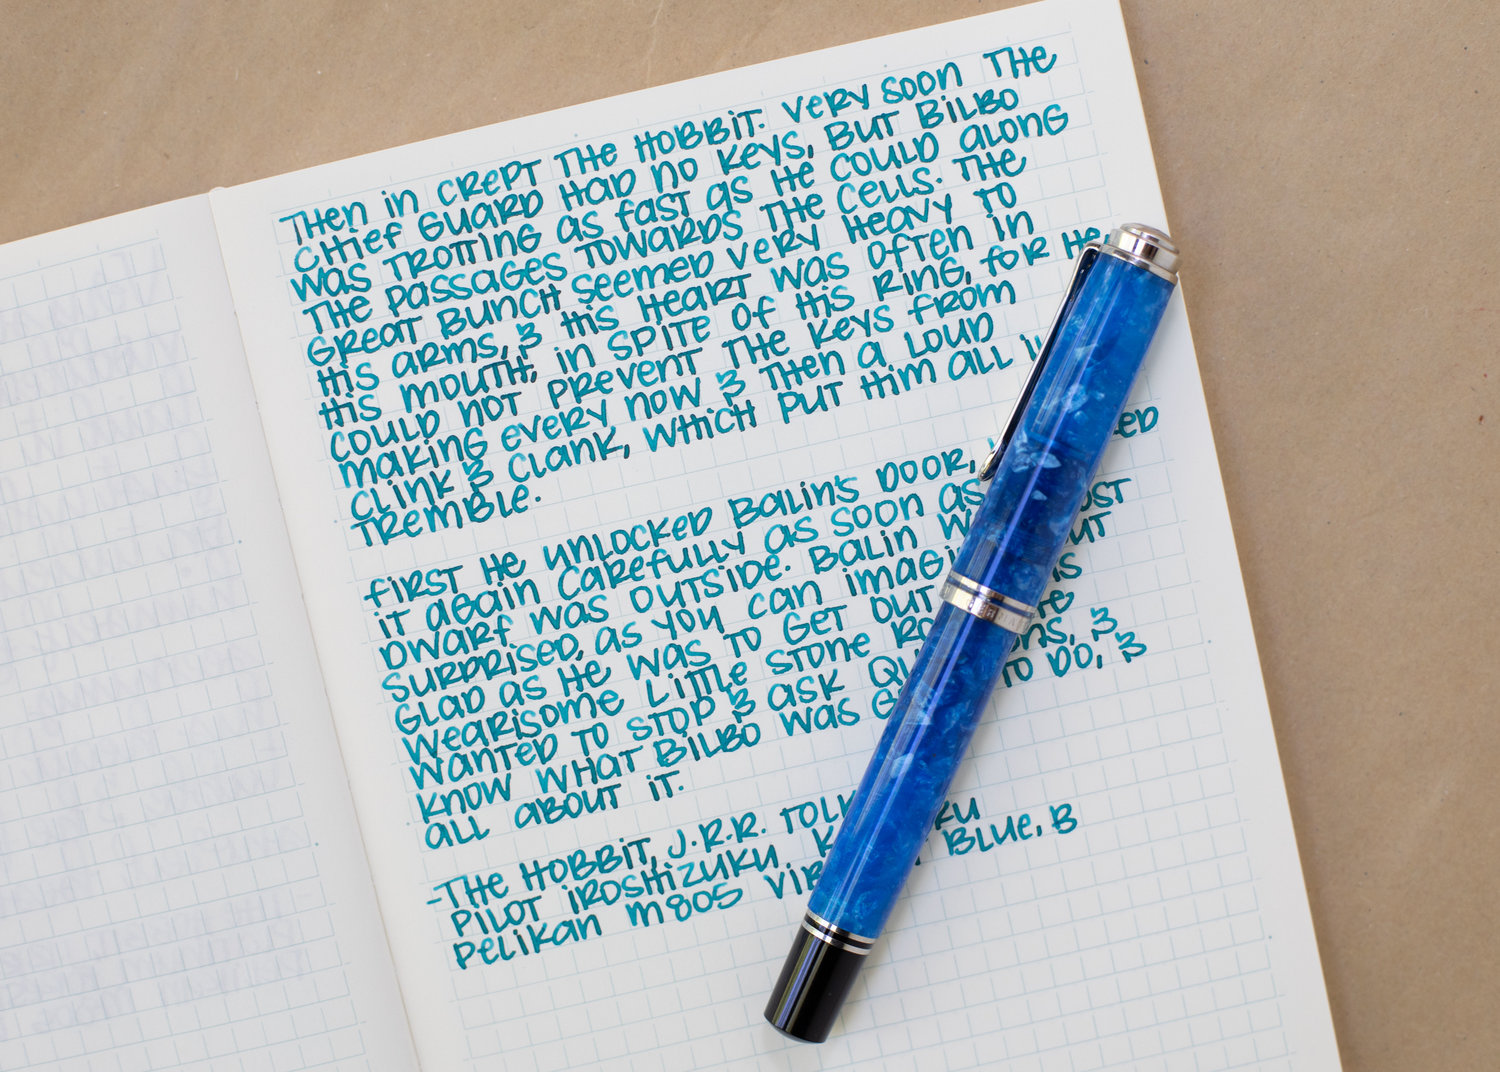 Then in crept the hobbit. Very soon the
chief guard had no keys, but Bilbo
was trotting as fast as he could along
the passages towards the cells. The
great bunch seemed very heavy to
his arms, & his heart was often in
his mouth, in spite of his ring, for he
could not prevent the keys from
making every now & then a loud
clink & clank, which put him all in
tremble.
First he unlocked Balin's door,
it again carefully as soon as
dwarf was outside. Balin
surprised, as you can
glad as he was to get out
wearisome little stone
wanted to stop & ask &
know what Bilbo was to do, &
all about it.
-The Hobbit, J.R.R.
Pilot Iroshizuku
Pelikan M805 Blue, B